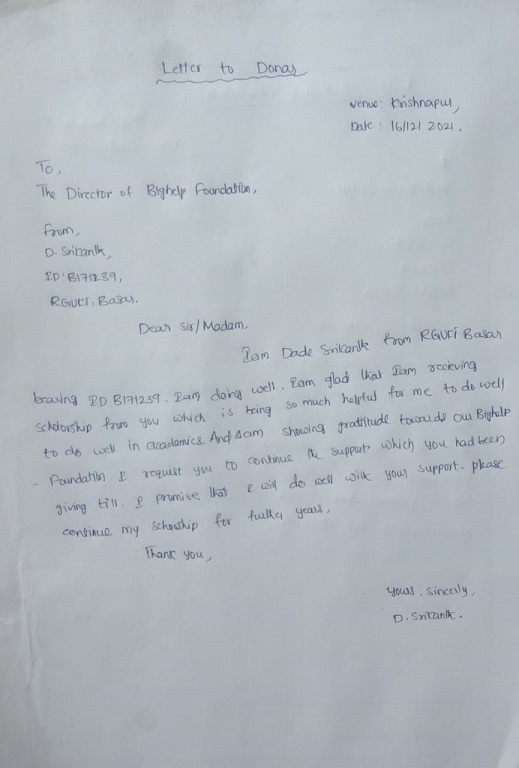 Letter to Donar
Venue: Krishnapur,
Date: 16/12/2021.
To,
The Director of Bighelp Foundation,
from,
D. Srikanth,
ID: B171239,
RGUKT, Basar.
Dear Sir/Madam,
I am Dade Srikanth from RGUKT Basar
bearing ID B171239. I am doing well. I am glad that I am recieving
scholorship from you which is being so much helpful for me to do well
to do well in acadamics. And I am showing gratitude towards our Bighelp
Foundation. I request you to continue the support which you had been
giving till. I promise that I will do well with your support. please
continue my schorship for further years.
Thank you,
yours sincerly,
D. Srikanth.